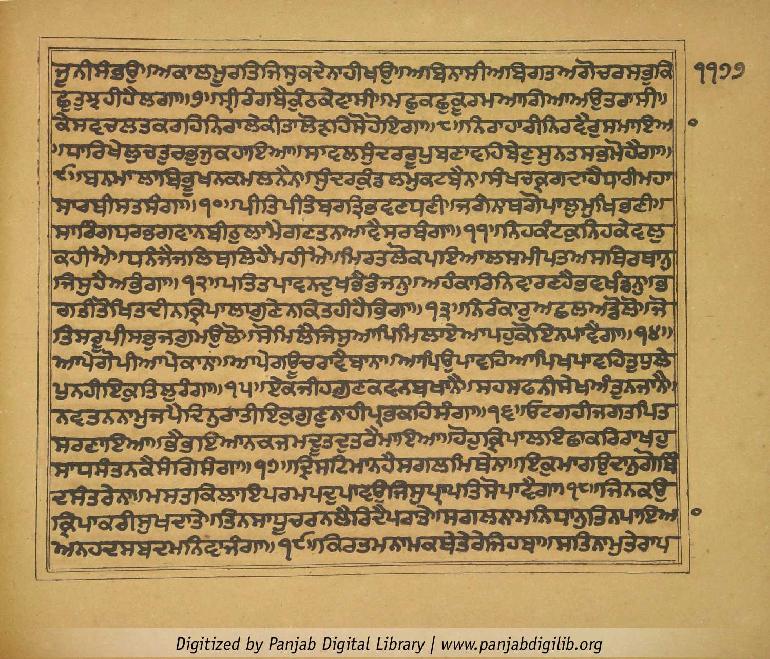 ਜੂਨੀਸੰਭਉ॥ਅਕਾਲਮੂਰਤਿਜਿਸੁਕਦੇਨਾਹੀਖਉ॥ਅਬਿਨਾਸੀਅਬਿਗਤਅਗੋਚਰਸਭੁਕਿ
੧੧੭੭
ਛੁਤੁਝਹੀਹੈਲਗਾ॥੭॥ਸ੍ਰੀਰੰਗਬੈਕੁੰਠਕੇਵਾਸੀ॥ਮਛੁਕਛੁਕੂਰਮਆਗਿਆਅਉਤਰਾਸੀ॥
ਕੇਸਵਚਲਤਕਰਹਿਨਿਰਾਲੇਕੀਤਾਲੋੜਹਿਸੋਹੋਇਗਾ॥੮॥ਨਿਰਾਹਾਰੀਨਿਰਵੈਰੁਸਮਾਇਆ
॥ਧਾਰਿਖੇਲੁਚਤੁਰਭੁਜੁਕਹਾਇਆ॥ਸਾਵਲਸੁੰਦਰਰੂਪੁਬਣਾਵਹਿਬੇਣੁਸੁਨਤਸਭਮੋਹੈਗਾ॥
੯॥ਬਨਮਾਲਾਬਿਭੂਖਨਕਮਲਨੈਨ॥ਸੁੰਦਰਕੁੰਡਲਮੁਕਟਬੈਨ॥ਸੰਖਚਕ੍ਰਗਦਾਹੈਧਾਰੀਮਹਾ
ਸਾਰਥੀਸਤਸੰਗਾ॥੧੦॥ਪੀਤਪੀਤੰਬਰਤ੍ਰਿਭਵਣਧਣੀ॥ਜਗੰਨਾਥੁਗੋਪਾਲੁਮੁਖਿਭਣੀ॥
ਸਾਰਿੰਗਧਰਭਗਵਾਨਬੀਠੁਲਾਮੈਗਣਤਨਆਵੈਸਰਬੰਗਾ॥੧੧॥ਨਿਹਕੰਟਕੁਨਿਹਕੇਵਲੁ
ਕਹੀਐ॥ਧਨੰਜੈਜਲਿਥਲਿਹੈਮਹੀਐ॥ਮਿਰਤਲੋਕਪਇਆਲਸਮੀਪਤਅਸਥਿਰਥਾਨੁ
ਜਿਸੁਹੈਅਭੰਗਾ॥੧੨॥ਪਤਿਤਪਾਵਨਦੁਖਭੈਭੰਜਨੁ॥ਅਹੰਕਾਰਨਿਵਾਰਣੁਹੈਭਵਖੰਡਨੁ॥ਭ
ਗਤੀਤੋਖਿਤਦੀਨਕ੍ਰਿਪਾਲਾਗੁਣੇਨਕਿਤਹੀਹੈਭਿਗਾ॥੧੩॥ਨਿਰੰਕਾਰੁਅਛਲਅਡੋਲੋ॥ਜੋ
ਤਿਸਰੂਪੀਸਭੁਜਗੁਮਉਲੋ॥ਸੋਮਿਲੈਜਿਸੁਆਪਿਮਿਲਾਏਆਪਹੁਕੋਇਨਪਾਵੈਗਾ॥੧੪॥
ਆਪੇਗੋਪੀਆਪੇਕਾਨਾ॥ਆਪੇਗਊਚਰਾਵੈਬਾਨਾ॥ਆਪਿਉਪਾਵਹਿਆਪਿਖਪਾਵਹਿਤੁਧੁਲੇ
ਪੁਨਹੀਇਕੁਤਿਲੁਰੰਗਾ॥੧੫॥ਏਕਜੀਹਗੁਣਕਵਨਬਖਾਨੈ॥ਸਹਸਫਨੀਸੇਖਅੰਤੁਨਜਾਨੈ॥
ਨਵਤਨਨਾਮਜਪੈਦਿਨੁਰਾਤੀਇਕੁਗੁਣੁਨਾਹੀਪ੍ਰਭਕਹਿਸੰਗਾ॥੧੬॥ਓਟਗਹੀਜਗਤਪਿਤ
ਸਰਣਾਇਆ॥ਭੈਭਇਆਨਕਜਮਦੂਤਦੁਤਰਹੈਮਾਇਆ॥ਹੋਹੁਕ੍ਰਿਪਾਲਇਛਾਕਰਿਰਾਖਹੁ
ਸਾਧਸੰਤਨਕੈਸੰਗਿਸੰਗਾ॥੧੭॥ਦ੍ਰਿਸਟਿਮਾਨਹੈਸਗਲਮਿਥੇਨਾ॥ਇਕੁਮਾਗਉਦਾਨੁਗੋਬਿੰ
ਦਸੰਤਰੇਨਾ॥ਮਸਤਕਿਲਾਇਪਰਮਪਦੁਪਾਵਉਜਿਸੁਪ੍ਰਾਪਤਿਸੋਪਾਵੈਗਾ॥੧੮॥ਜਿਨਕਉ
ਕ੍ਰਿਪਾਕਰੀਸੁਖਦਾਤੇ॥ਤਿਨਸਾਧੂਚਰਨਲੈਰਿਦੈਪਰਾਤੇ॥ਸਗਲਨਾਮਨਿਧਾਨੁਤਿਨਪਾਇਆ
ਅਨਹਦਸਬਦਮਨਿਵਾਜੰਗਾ॥੧੯॥ਕਿਰਤਮਨਾਮਕਥੇਤੇਰੇਜਿਹਬਾ॥ਸਤਿਨਾਮੁਤੇਰਾਪ
Digitized by Panjab Digital Library | www.panjabdigilib.org